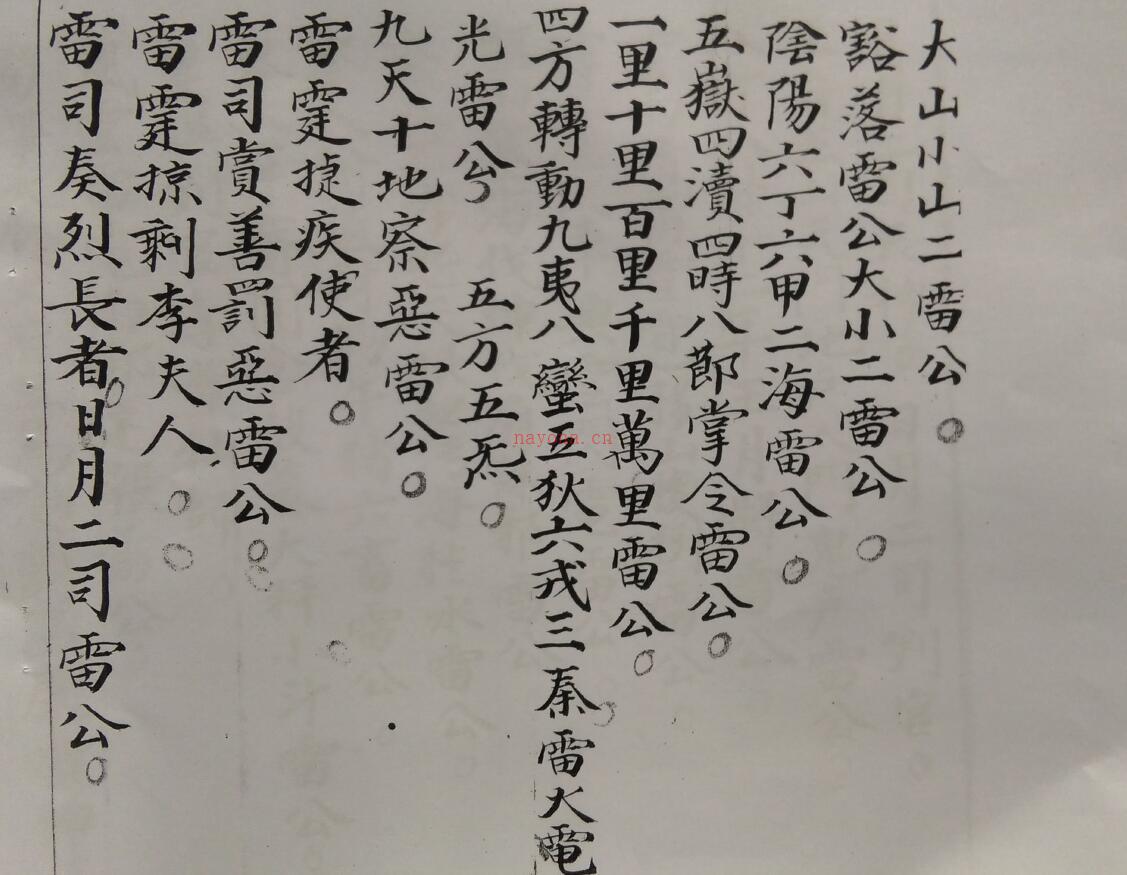 大山小山二雷公○
豁落雷公大小二雷公○
陰陽六丁六甲二海雷公○
五嶽四瀆四時八節掌令雷公○
一里十里百里千里萬里雷公○
四方轉動九夷八蠻五狄六戎三秦雷火電
光雷公 五方五炁○
九天十地察惡雷公○
雷霆捷疾使者○
雷司賞善罰惡雷公○
雷霆掠剩李夫人○
雷司奏烈長者○日月二司雷公○
nayona.cn